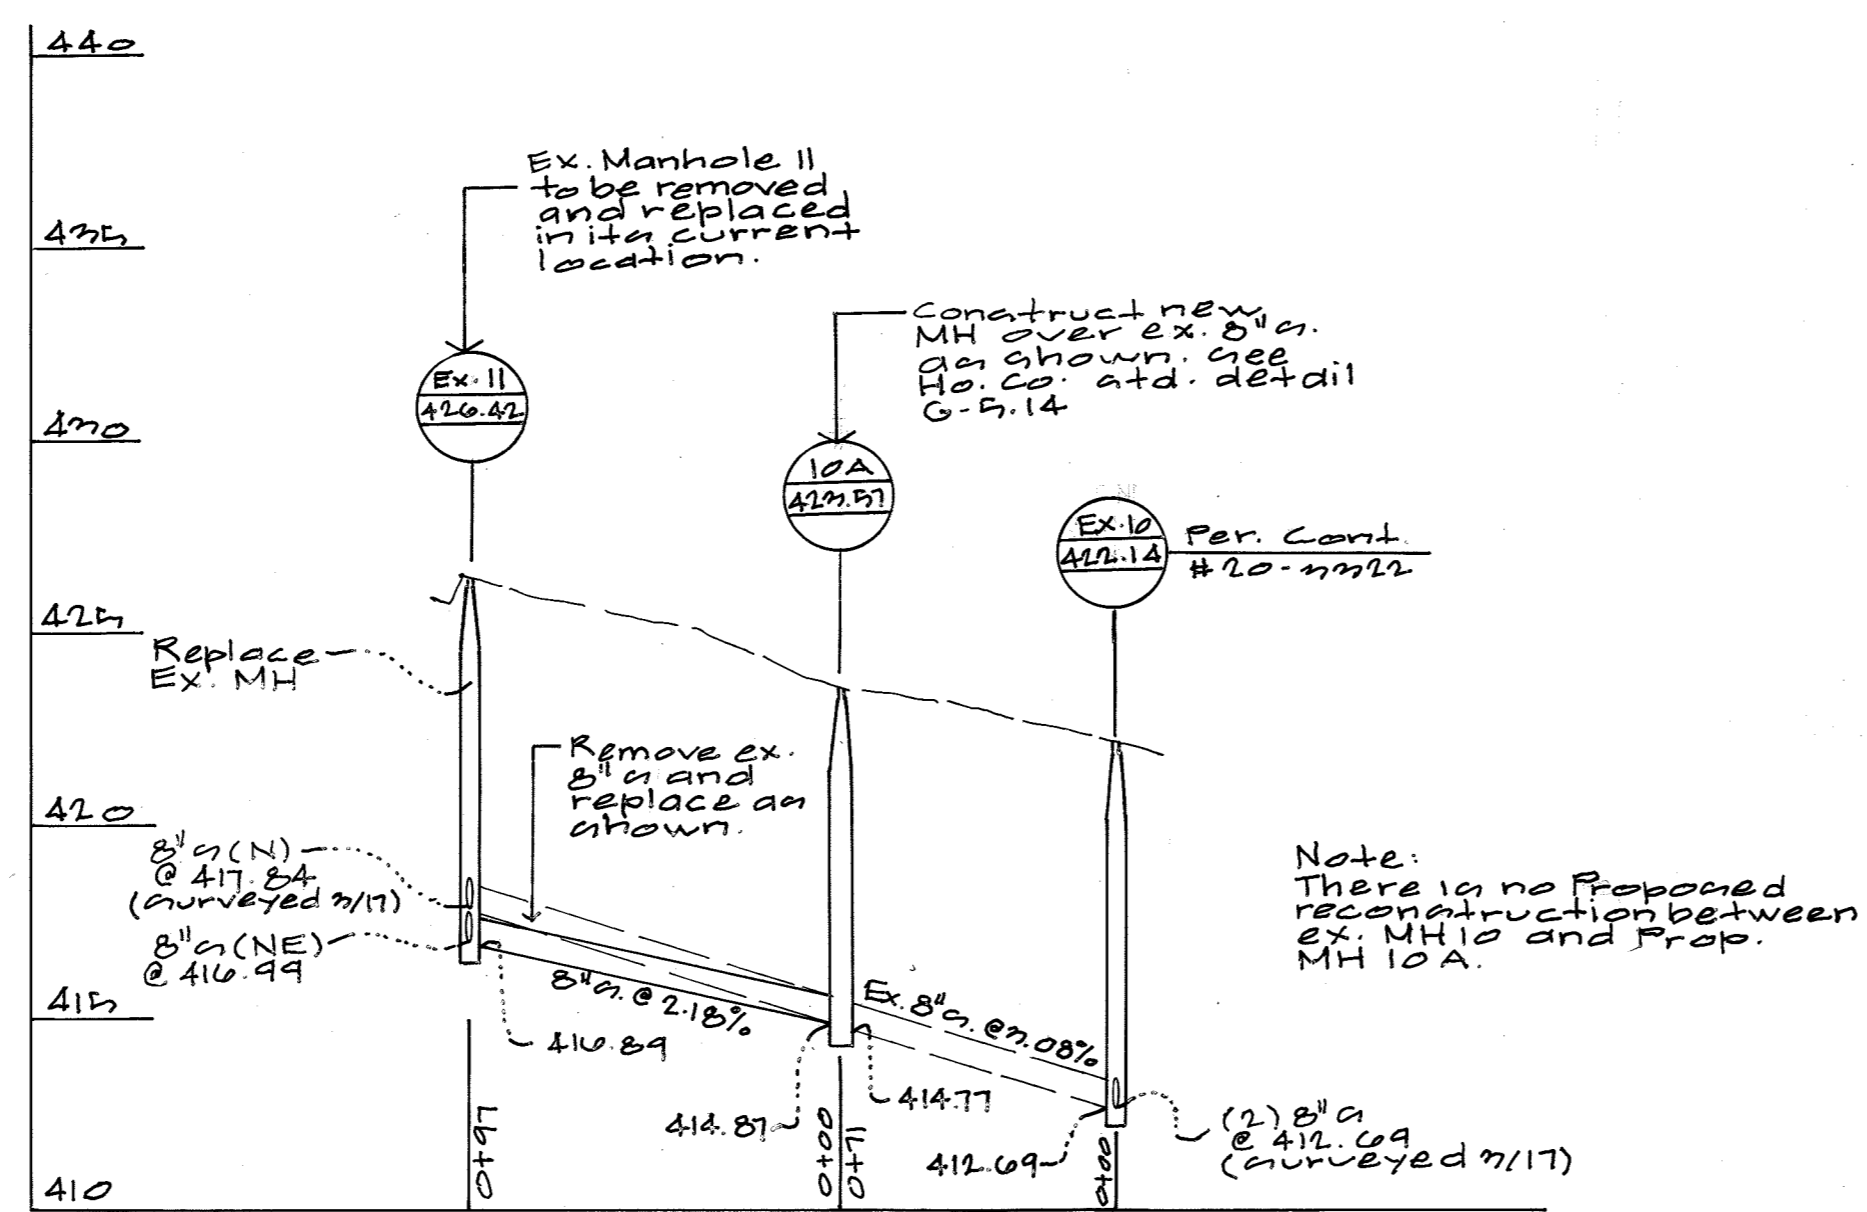 440
435
430
425
420
415
410
Ex. Manhole 11
to be removed
and replaced
in its current
location.
Construct new
MH over ex. 8" s.
as shown. See
Ho. Co. std. detail
G-5.14
Ex. 11
426.42
10A
423.57
Ex. 10
422.14
Per. Cont.
#20-3322
Replace
Ex. MH
Remove ex.
8" s and
replace as
shown.
8" s (N)
@ 417.84
(surveyed 3/17)
8" s (NE)
@ 416.99
8" s. @ 2.18%
Ex. 8" s. @ 3.08%
416.89
414.87
414.77
412.69
(2) 8" s
@ 412.69
(surveyed 3/17)
Note:
There is no Proposed
reconstruction between
ex. MH10 and Prop.
MH 10A.
0+97
0+00
0+71
0+00